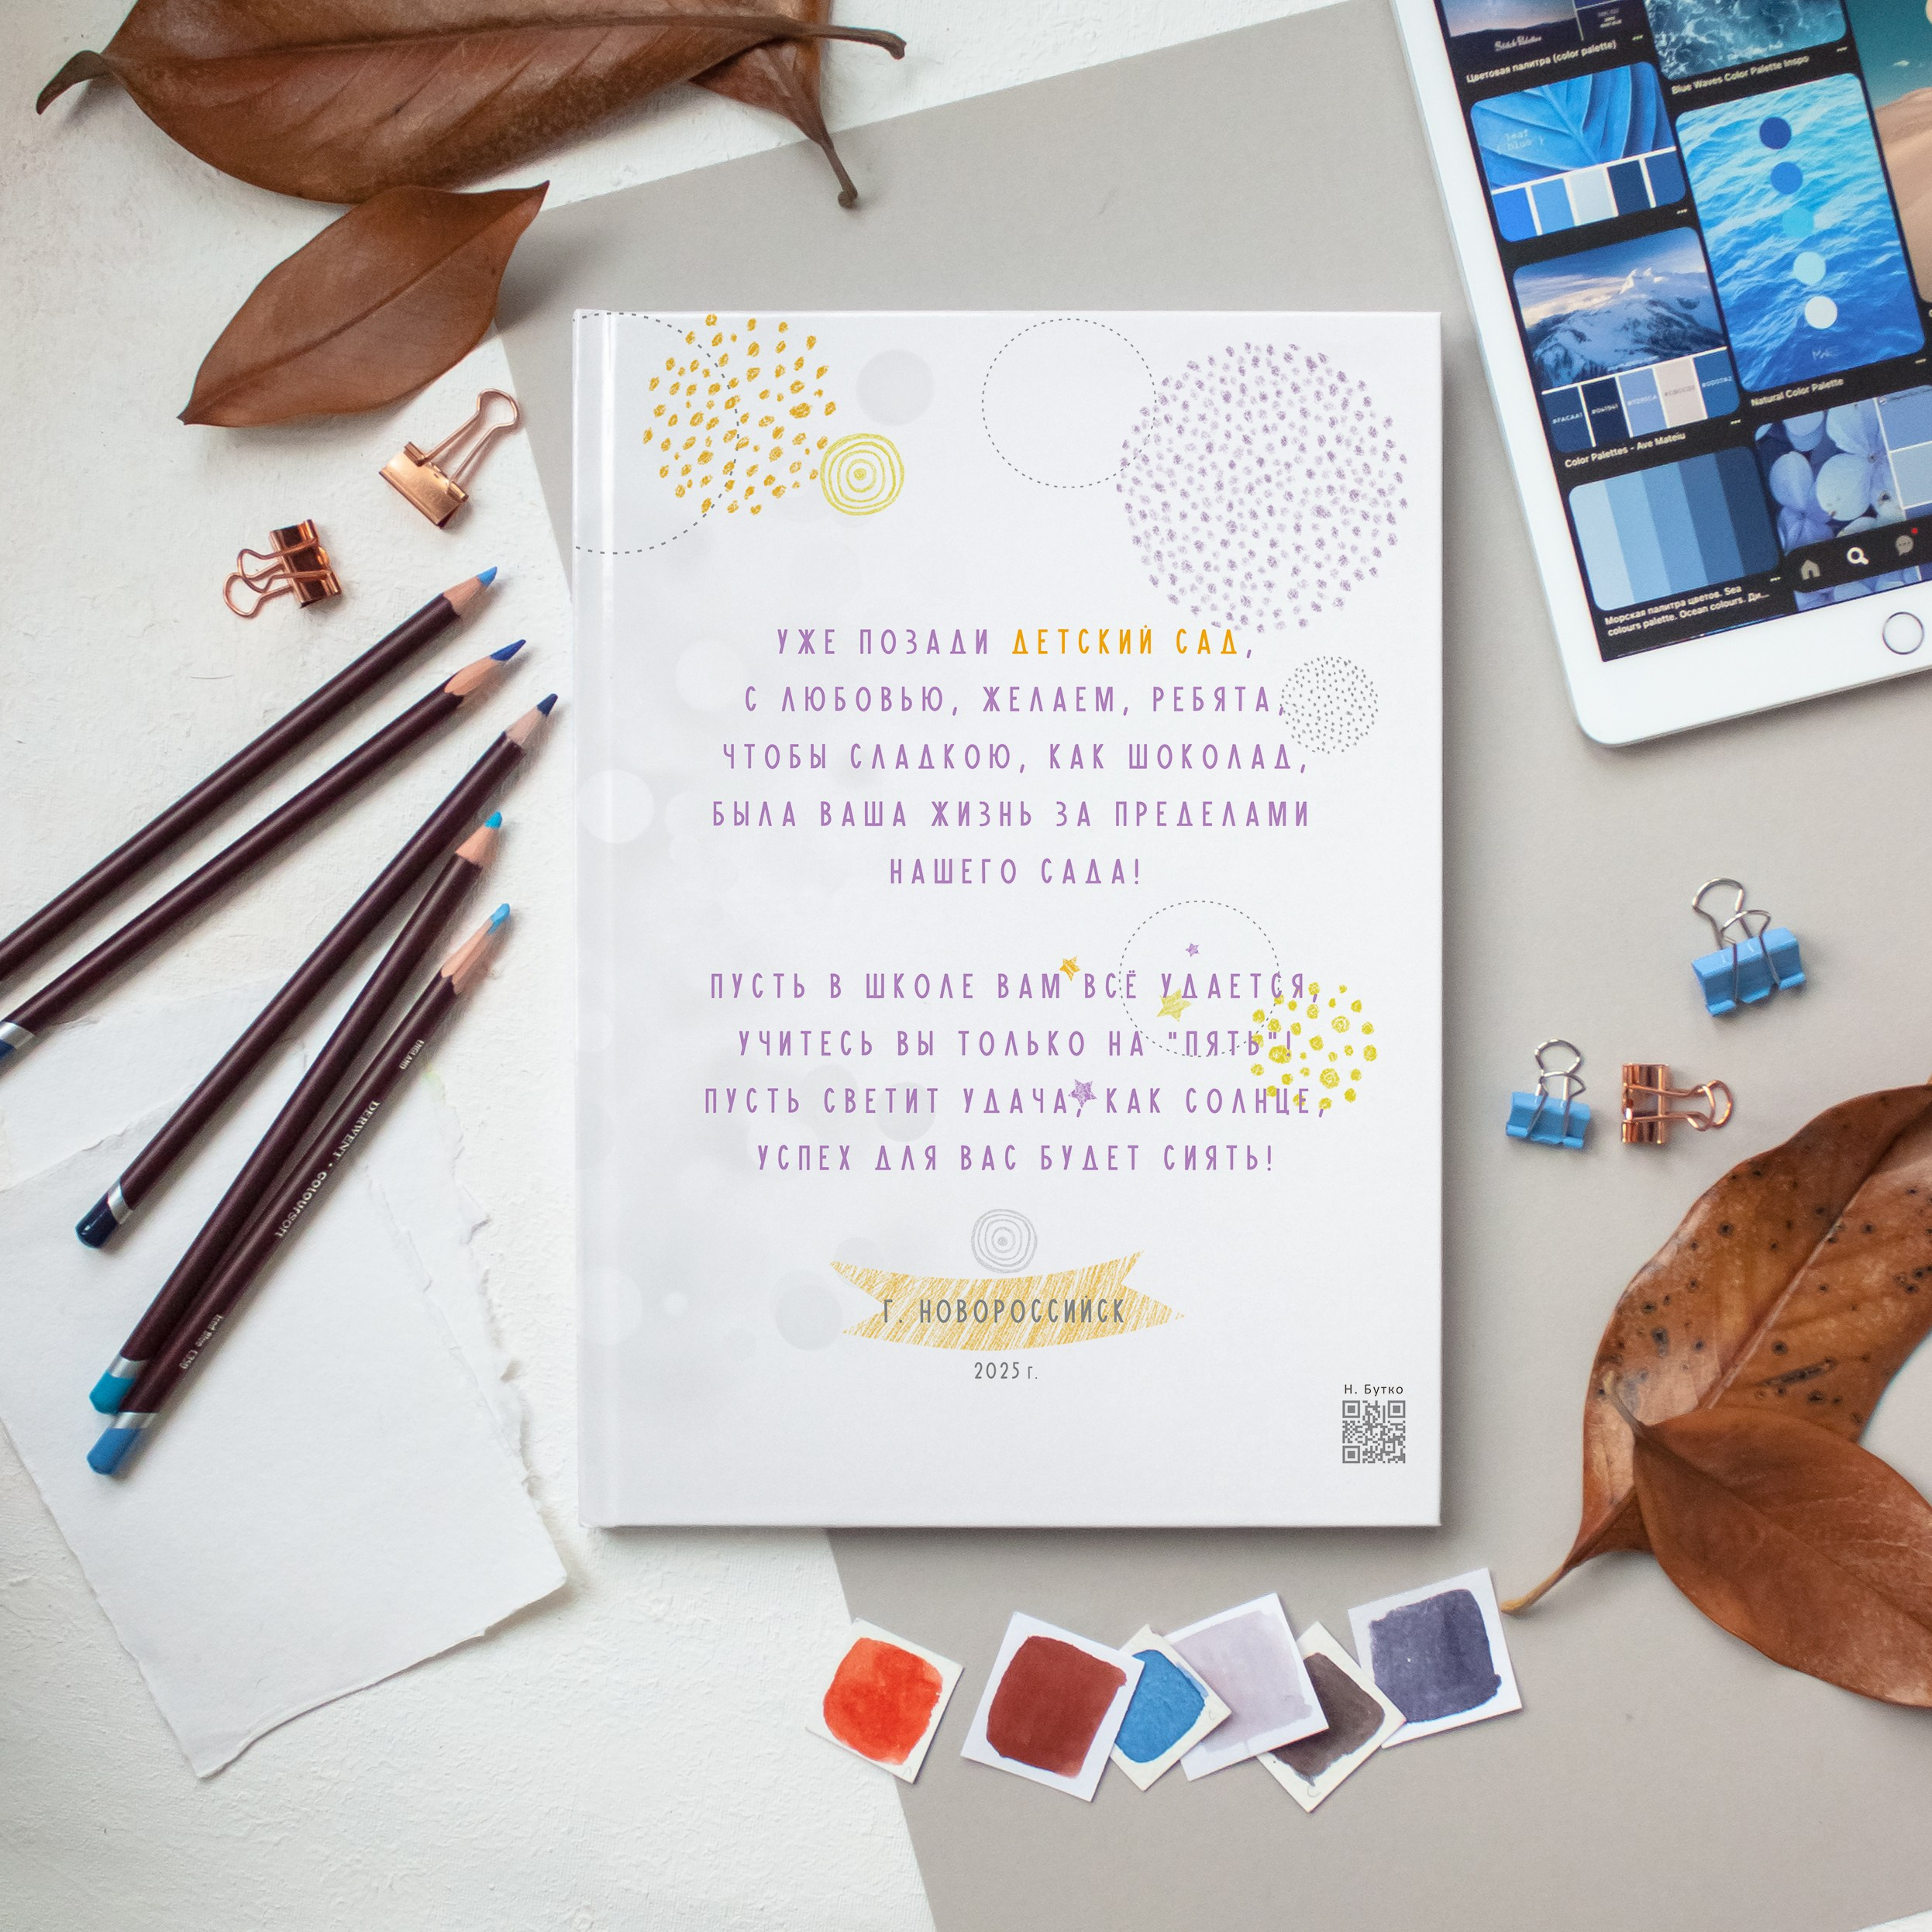 Цветовая палитра (color palette)
Blue Waves Color Palette Inspo
Color Palettes - Ave Mateiu
Natural Color Palette
Морская палитра цветов. Sea
colours palette. Ocean colours. Ди...
УЖЕ ПОЗАДИ ДЕТСКИЙ САД,
С ЛЮБОВЬЮ, ЖЕЛАЕМ, РЕБЯТА,
ЧТОБЫ СЛАДКОЮ, КАК ШОКОЛАД,
БЫЛА ВАША ЖИЗНЬ ЗА ПРЕДЕЛАМИ
НАШЕГО САДА!
ПУСТЬ В ШКОЛЕ ВАМ ВСЁ УДАЕТСЯ,
УЧИТЕСЬ ВЫ ТОЛЬКО НА "ПЯТЬ"!
ПУСТЬ СВЕТИТ УДАЧА, КАК СОЛНЦЕ,
УСПЕХ ДЛЯ ВАС БУДЕТ СИЯТЬ!
Г. НОВОРОССИЙСК
2025 г.
Н. Бутко
DERWENT · COLOURSOFT
ENGLAND